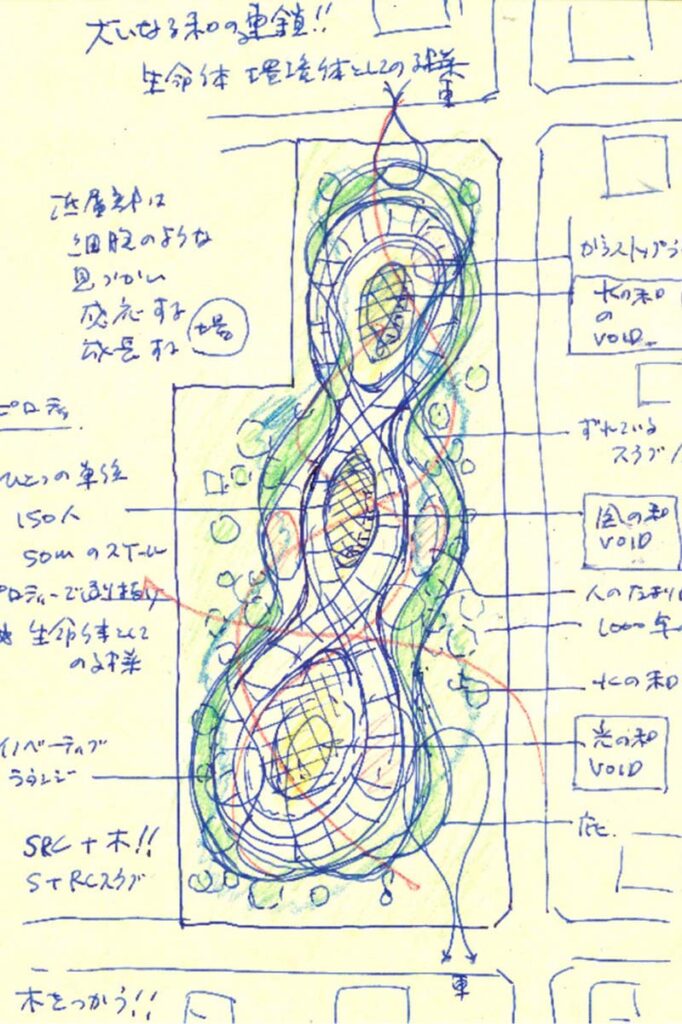 大いなる和の連鎖!!
生命体 環境体としての様
車
低層部は
細胞のような
息づかい
感応する
成長する
場
ガラストップラ
水の和
の
VOID
ピロティ
ずれている
スラブ
ひとつの単位
150人
50mのスケール
風の和
VOID
ピロティーで通り抜け
人のたまり
生命体として
の様
1000年
水の和
イノベーティブ
ラウンジ
光の和
VOID
SRC+木!!
S+RCスラブ
庇
車
木をつかう!!